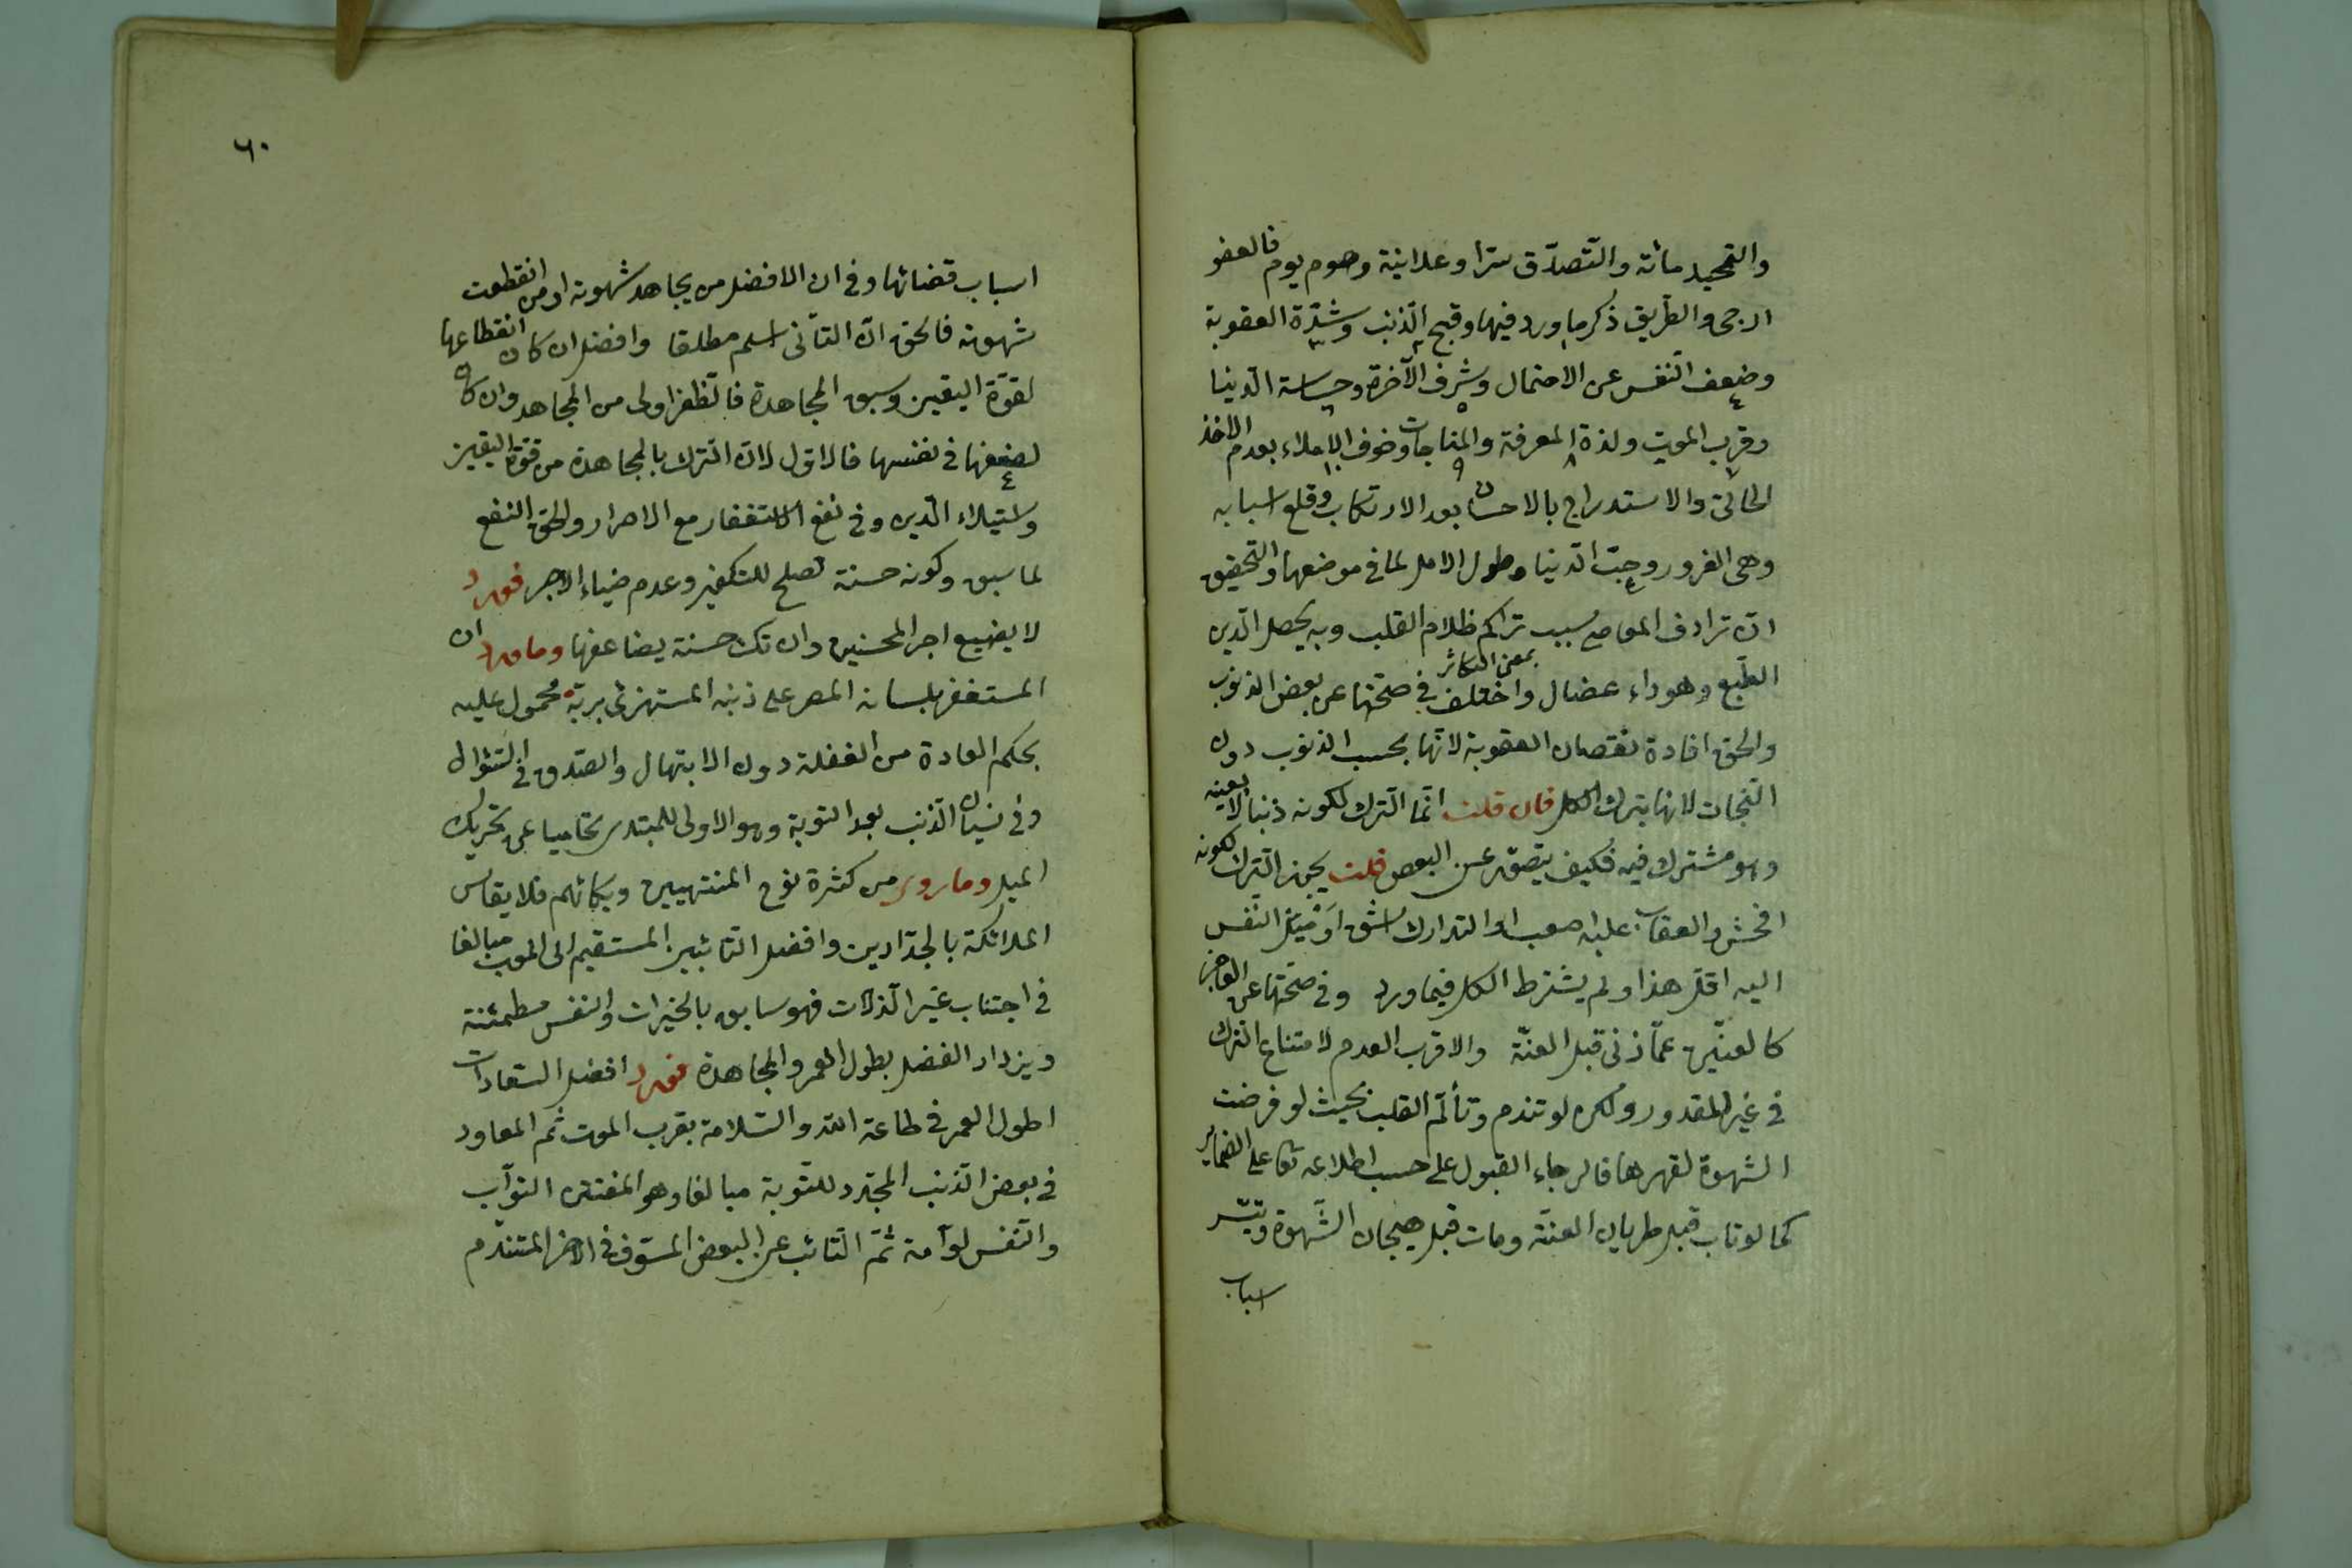 والتحميد مائة والتصدّق سرّا وعلانية وصوم يوم فالعفو
ارجى والطريق ذكر ما ورد فيها وقبح الذنب وشدّة العقوبة
وضعف النفس عن الاحتمال وشرف الآخرة وخساسة الدنيا
وقرب الموت ولذة المعرفة والمناجات وخوف الاملاء بعدم الاخذ
الحالّى والاستدراج بالاحسان بعد الارتكاب وقلع اسبابه
وهى الغرور وحبّ الدنيا وطول الامل لما فى موضعها والتحقيق
انّ ترادف المعاصى سبب تراكم ظلام القلب وبه يحصل الرين
بمعنى التكاثر
الطبع وهو داء عضال واختلف فى صحّتها عن بعض الذنوب
والحق افادة نقصان العقوبة لانّها بحسب الذنوب دون
النجات لانها بترك الكل فان قلت انّما الترك لكونه ذنبا لا بعينه
وهو مشترك فيه فكيف يتصوّر عن البعض قلت يجوز الترك لكونه
افحش والعقاب عليه اصعب او التدارك اشق او ميل النفس
اليه اقل هذا ولم يشترط الكل فيما ورد وفى صحّتها عن العاجز
كالعنّين عمّا زنى قبل العنّة والاقرب العدم لامتناع الترك
فى غير المقدور ولكن لو تندم وتألّم القلب بحيث لو فرضت
الشهوة لقهرها فالرجاء القبول على حسب اطلاعه تعالى على الضمائر
كما لو تاب قبل طريان العنّة ومات قبل هيجان الشهوة وتيسّر
اسباب
٦٠
اسباب قضائها وفى ان الافضل من يجاهد شهوته او من انقطعت
شهوته فالحق انّ الثانى اسلم مطلقا وافضل ان كان انقطاعها
لقوّة اليقين وسبق المجاهدة فالظفر اولى من المجاهد وان كان
لضعفها فى نفسها فالاوّل لانّ الترك بالمجاهدة من قوة اليقين
واستيلاء الدين وفى نفع الاستغفار مع الاصرار والحق النفع
لما سبق وكونه حسنة تصلح للتكفير وعدم ضياء الاجر فورد
لا يضيع اجر المحسنين وان تك حسنة يضاعفها وما ورد ان
المستغفر بلسانه المصر على ذنبه المستهزئ بربّه محمول عليه
بحكم العادة من الغفلة دون الابتهال والصدق فى السّؤال
وفى نسيان الذنب بعد التوبة وهو الاولى للمبتدى تحاميا عن تحريك
الميل وما روى من كثرة نوح المنتهيين وبكائهم فلا يقاس
الملائكة بالحدّادين وافضل التائبين المستقيم الى الموت مبالغا
فى اجتناب غير الذلّات فهو سابق بالخيرات والنفس مطمئنة
ويزداد الفضل بطول العمر والمجاهدة فورد افضل السّعادات
اطول العمر فى طاعة الله والسّلامة بقرب الموت ثم المعاود
فى بعض الذنب المجدّد للتوبة مبالغا وهو المفتتن التوّاب
والنفس لوّامة ثمّ التائب عن البعض المسوّف فى الاخر المتندّم